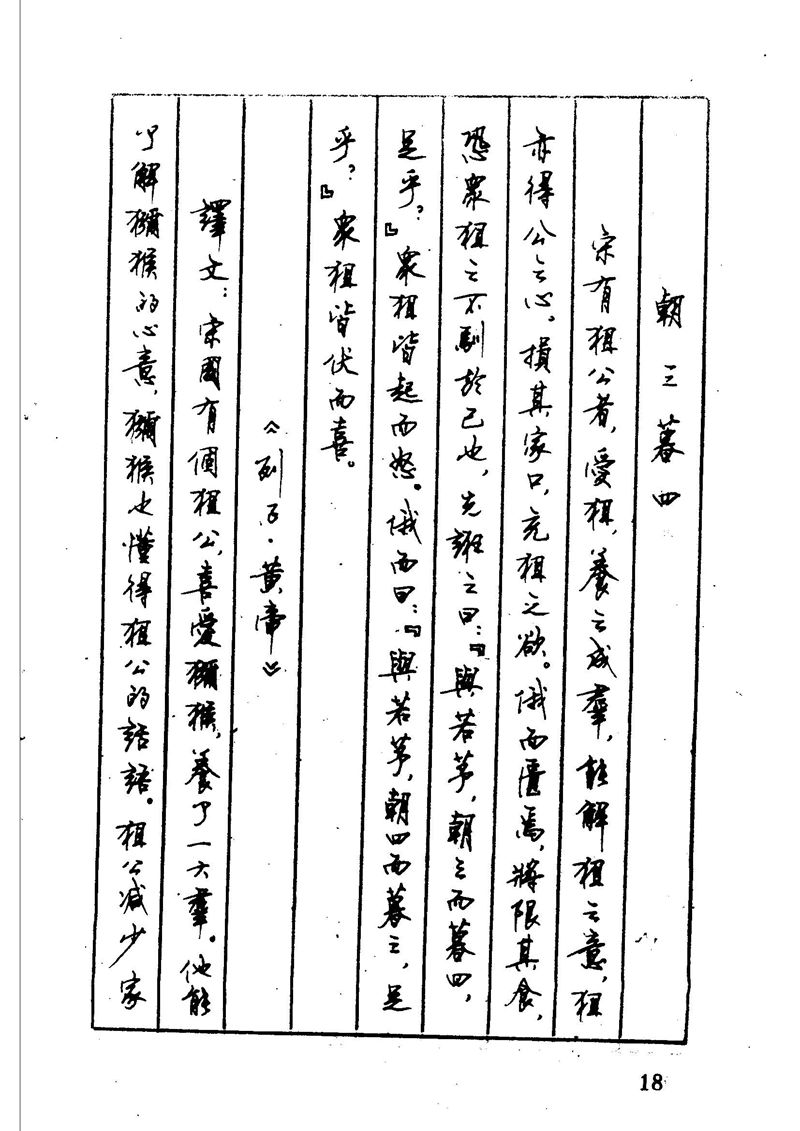 朝三暮四
宋有狙公者，愛狙，養之成羣，能解狙之意，狙
亦得公之心。損其家口，充狙之欲。俄而匱焉，將限其食，
恐衆狙之不馴於己也，先誑之曰：『與若芧，朝三而暮四，
足乎？』衆狙皆起而怒。俄而曰：『與若芧，朝四而暮三，足
乎？』衆狙皆伏而喜。
《列子·黄帝》
譯文：宋國有個狙公，喜愛獼猴，養了一大羣。他能
了解獼猴的心意，獼猴也懂得狙公的話語。狙公减少家
18